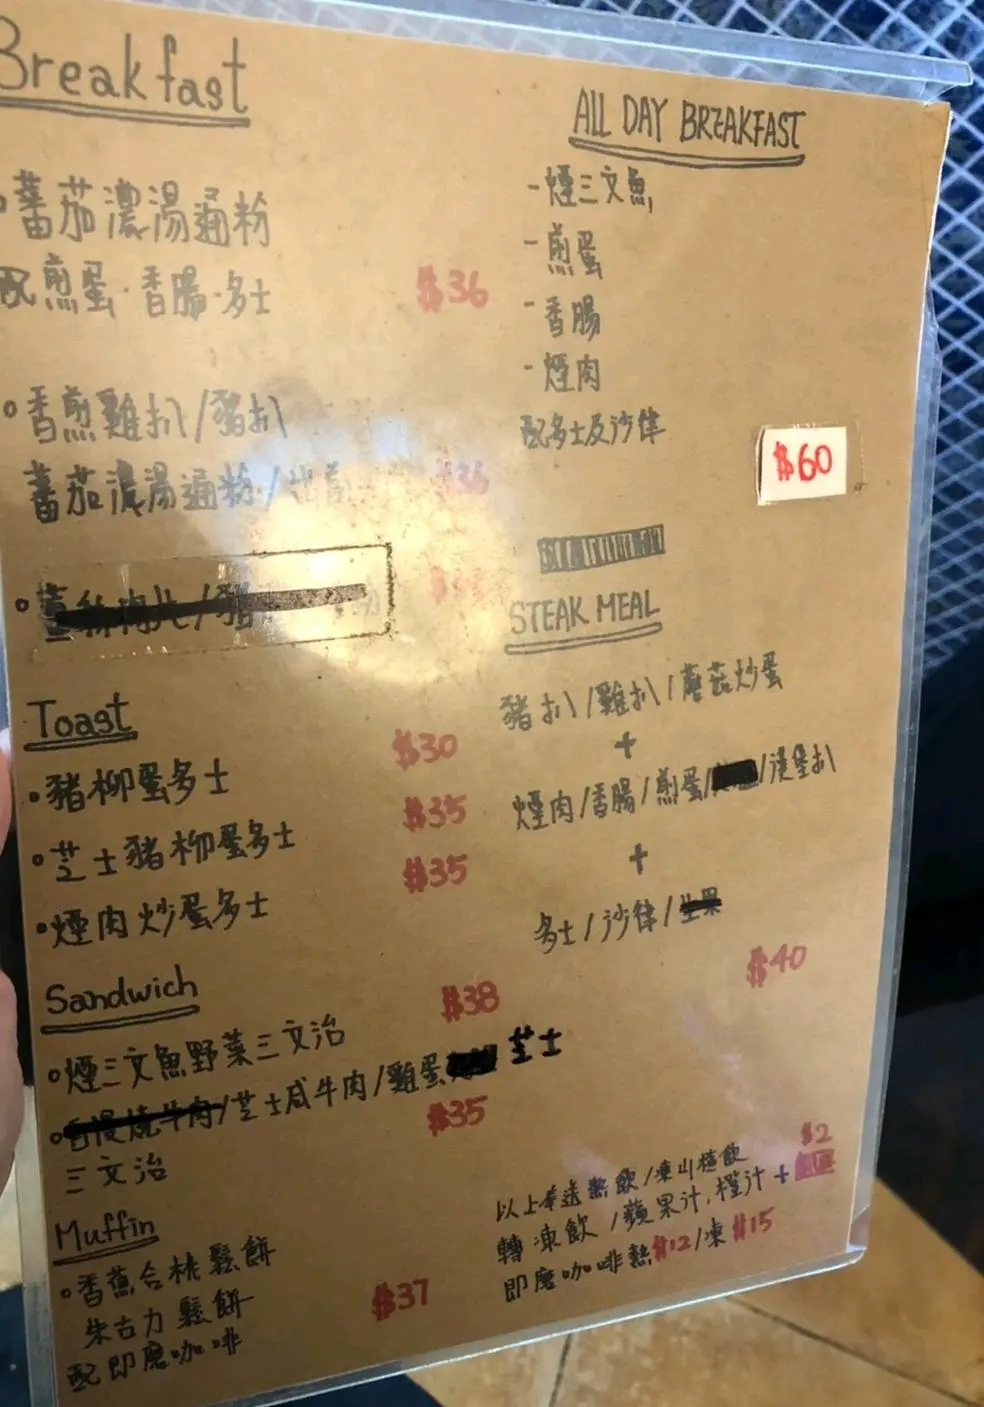 Breakfast
蕃茄濃湯通粉
配煎蛋·香腸·多士 $36
香煎雞扒/豬扒
蕃茄濃湯通粉/ $36
Toast
$30
豬柳蛋多士
$35
芝士豬柳蛋多士
$35
煙肉炒蛋多士
Sandwich
$38
煙三文魚野菜三文治
/芝士咸牛肉/雞蛋 芝士
$35
三文治
Muffin
香蕉合桃鬆餅
朱古力鬆餅 $37
配即磨咖啡
ALL DAY BREAKFAST
-煙三文魚
-煎蛋
-香腸
-煙肉
配多士及沙律
$60
STEAK MEAL
豬扒/雞扒/蘑菇炒蛋
+
煙肉/香腸/煎蛋/ /漢堡扒
+
多士/沙律/
$40
以上奉送熱飲/凍山楂飲
$2
轉凍飲/蘋果汁,橙汁+
即磨咖啡熱$12/凍$15